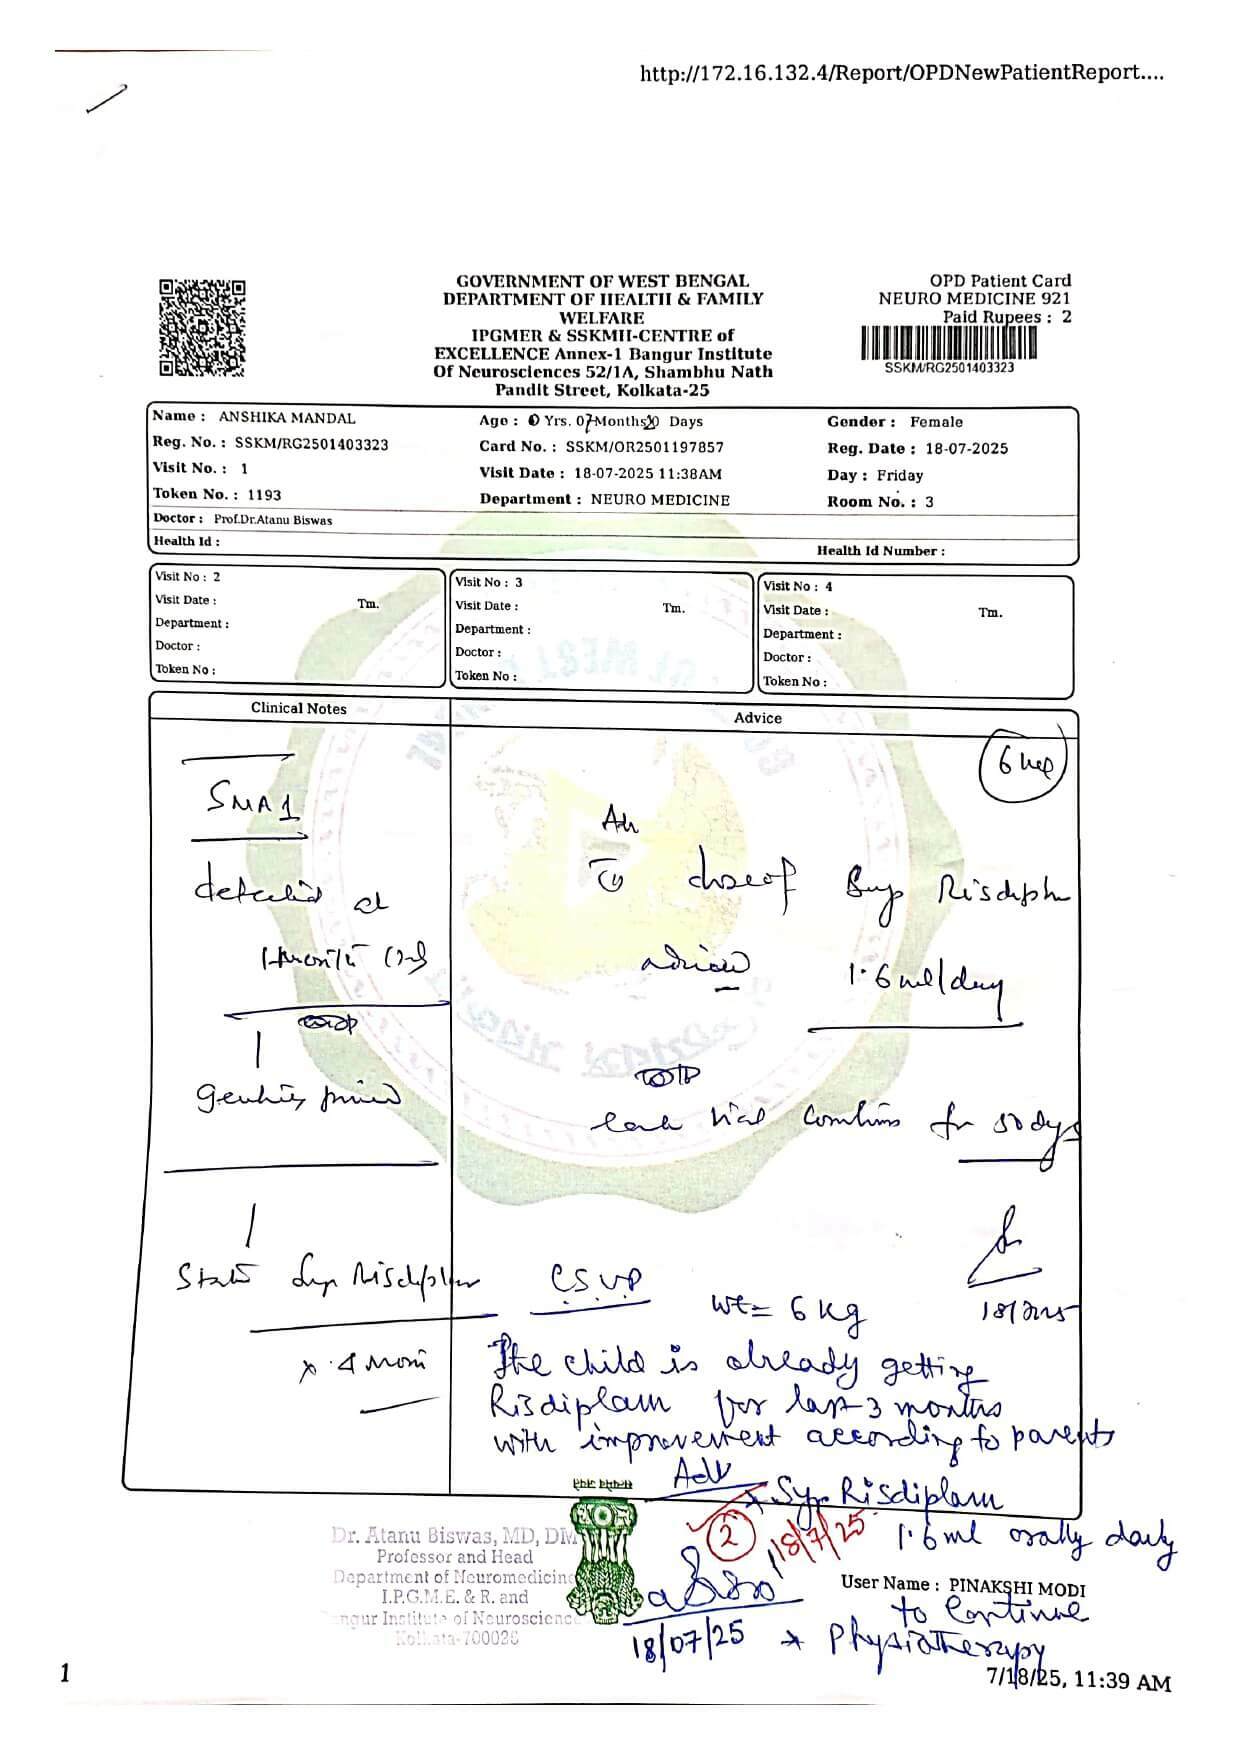 http://172.16.132.4/Report/OPDNewPatientReport....
GOVERNMENT OF WEST BENGAL
DEPARTMENT OF HEALTH & FAMILY
WELFARE
IPGMER & SSKMH-CENTRE of
EXCELLENCE Annex-1 Bangur Institute
Of Neurosciences 52/1A, Shambhu Nath
Pandit Street, Kolkata-25
OPD Patient Card
NEURO MEDICINE 921
Paid Rupees : 2
SSKM/RG2501403323
Name : ANSHIKA MANDAL
Age : 0 Yrs. 07 Months 20 Days
Gender : Female
Reg. No. : SSKM/RG2501403323
Card No. : SSKM/OR2501197857
Reg. Date : 18-07-2025
Visit No. : 1
Visit Date : 18-07-2025 11:38AM
Day : Friday
Token No. : 1193
Department : NEURO MEDICINE
Room No. : 3
Doctor : Prof.Dr.Atanu Biswas
Health Id :
Health Id Number :
Visit No : 2
Visit Date : Tm.
Department :
Doctor :
Token No :
Visit No : 3
Visit Date : Tm.
Department :
Doctor :
Token No :
Visit No : 4
Visit Date : Tm.
Department :
Doctor :
Token No :
Clinical Notes
Advice
SMA1
detected at
Start Syp Risdiplam
x 4
dose of Syp Risdiplam
advised 1.6 ml/day
each vial for
CSVP
Wt = 6 kg
The child is already getting
Risdiplam for last 3 months
with improvement according to parents
Adv
* Syp Risdiplam
1.6 ml orally daily
to continue
* Physiotherapy
2
18/7/25
18/07/25
Dr. Atanu Biswas, MD, DM
Professor and Head
Department of Neuromedicine
I.P.G.M.E. & R. and
Bangur Institute of Neuroscience
Kolkata-700025
User Name : PINAKSHI MODI
1
7/18/25, 11:39 AM